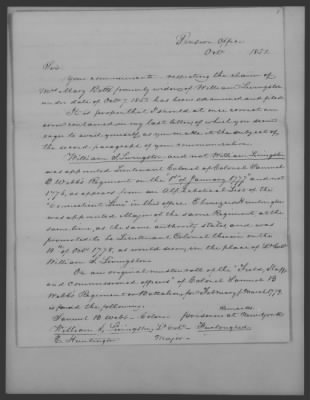 Pension Office
Oct. 1852
Sir.
Your communication respecting the claim of
Mrs Mary Betts formerly widow of William Livingston
under date of Oct. 1852 has been examined and filed
It is proper that I should at once correct an
error contained in my last letter, of which you seem
to avail yourself, as you make it the subject of
the second paragraph of your communication.
William S. Livingston and not William Livingston
was appointed Lieutenant Colonel of Colonel Samuel
B Webb's Regiment on the 1st of January 1777 and not
1776, as appears from an Alphabetical List of the
"Connecticut Line" in this office. Ebenezer Huntington
was appointed Major of the same Regiment at the
same time, as the same authority states, and was
promoted to be Lieutenant Colonel therein on the
10th of Oct 1778, as would seem, in the place of Lt Col.
William S. Livingston.
On an original muster roll of the "Field, Staff
and Commissioned officers" of Colonel Samuel B
Webb's Regiment or Battalion, for February & March 1778
is found the following: Remarks.
Samuel B Webb - Colonel prisoner at New York
William S. Livingston, Lt Col. Furloughed
E. Huntington Major -